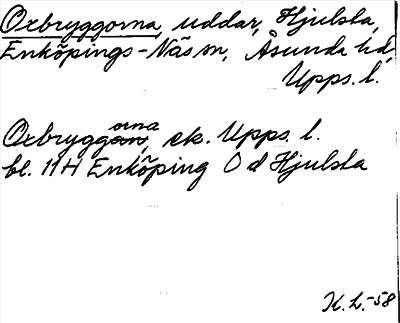 Oxbryggorna, uddar, Hjulsta,
Enköpings-Näs sn, Åsunda hd,
Upps. l.
Oxbryggorna, ek. Upps. l.
bl. 11H Enköping O d Hjulsta
K. L. -58